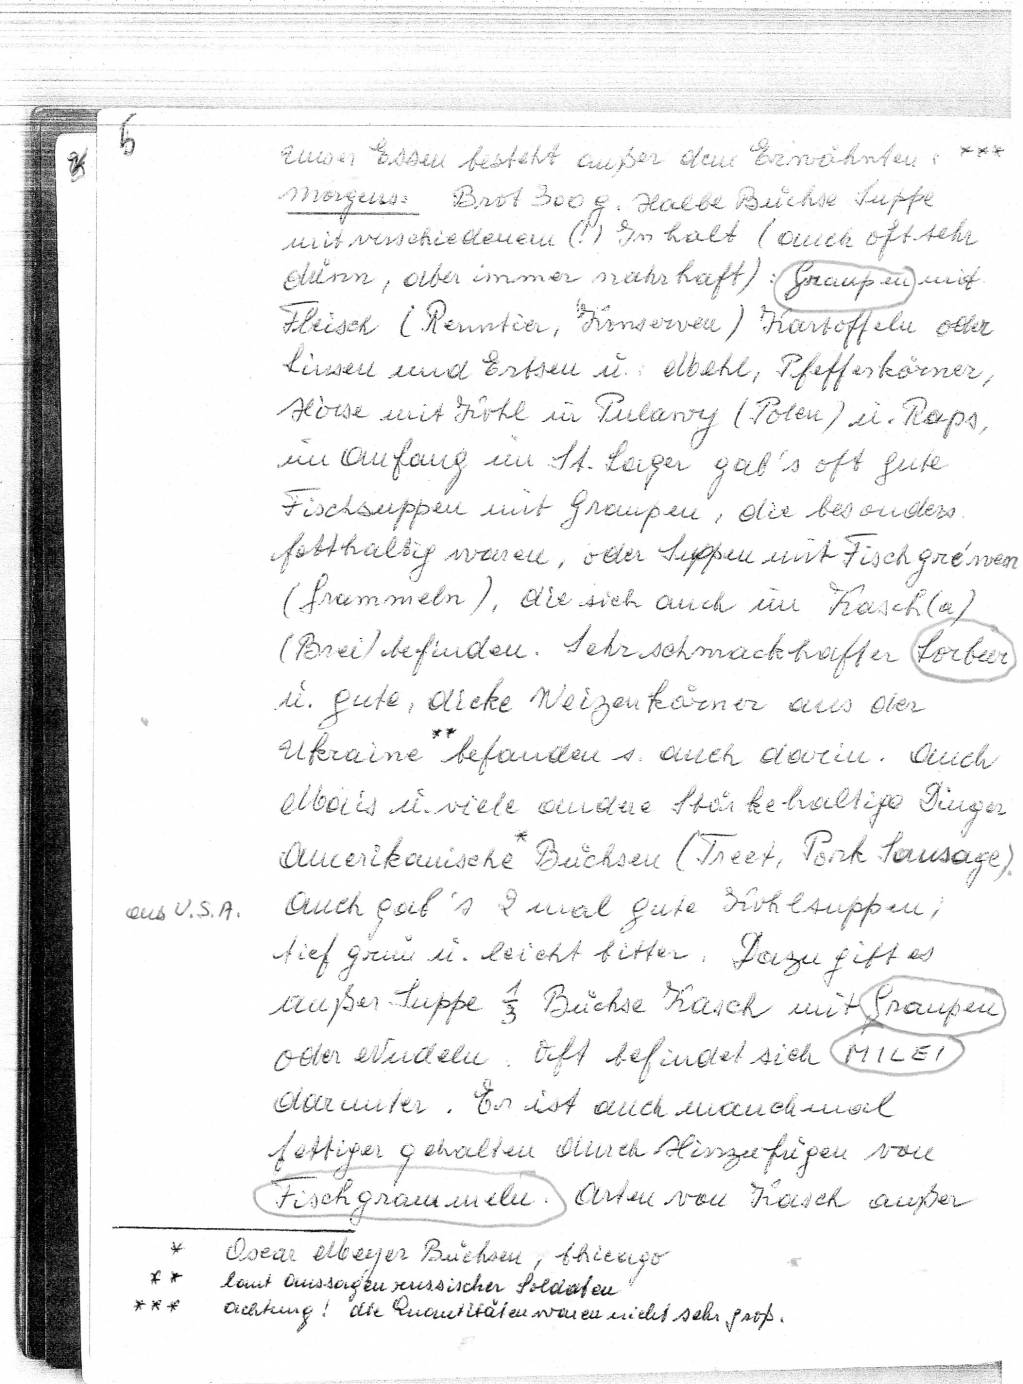 6
unser Essen besteht außer dem Erwähnten: ***
Morgens: Brot 300 g. Halbe Büchse Suppe
mit verschiedenem (!) Inhalt (auch oft sehr
dünn, aber immer nahrhaft): Graupen mit
Fleisch (Renntier, Konserven) Kartoffeln oder
Linsen und Erbsen u. Mehl, Pfefferkörner,
Hirse mit Kohl in Pulawy (Polen) u. Raps,
im Anfang im St. Lager gab's oft gute
Fischsuppen mit Graupen, die besonders
fetthaltig waren, oder Suppen mit Fisch
(Grammeln), die sich auch im Kasch(a)
(Brei) befinden. Sehr schmackhafter
u. gute, dicke Weizenkörner aus der
Ukraine** befanden s. auch darin. Auch
Mais u. viele andere Stärkehaltige Dinger
Amerikanische* Büchsen (Treet, Pork Sausage).
aus U.S.A. Auch gab's 2 mal gute Kohlsuppen;
tief grün u. leicht bitter. Dazu gibt es
außer Suppe 1/3 Büchse Kasch mit Graupen
oder Nudeln. Oft befindet sich MILEI
darunter. Er ist auch manchmal
fettiger gehalten durch Hinzufügen von
Fischgrammeln. Arten von Kasch außer
* Oscar Meyer Büchsen, Chicago
** laut Aussagen russischer Soldaten
*** Achtung! die Quantitäten waren nicht sehr groß.